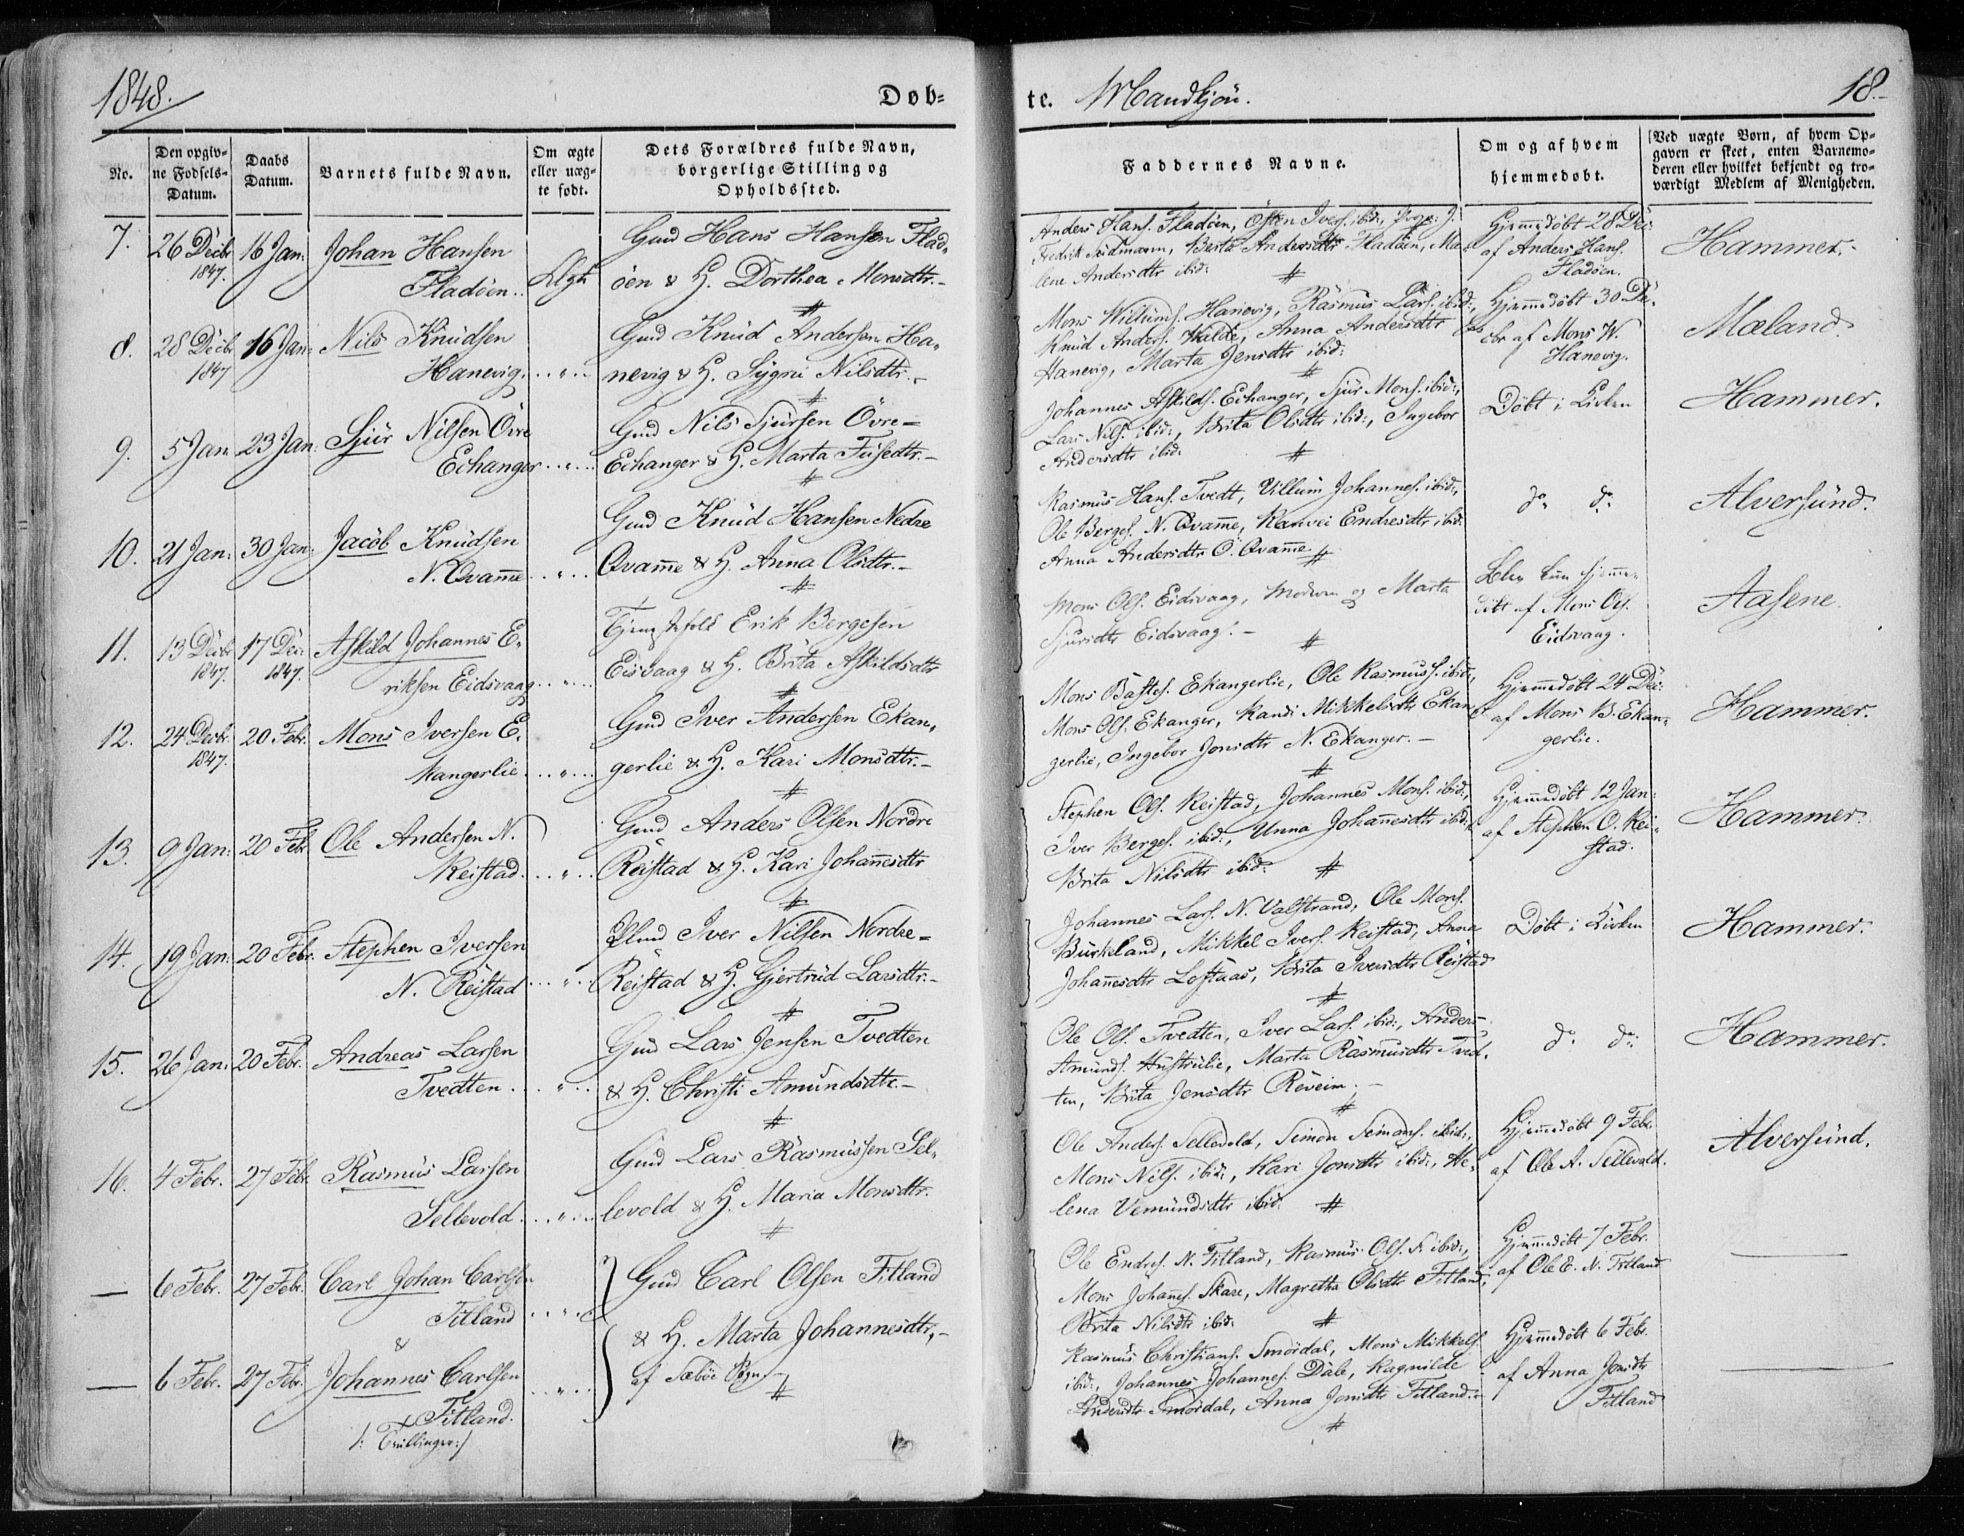 1848.
Døb-
te. Mandkjøn.
18.
No.
Den opgiv-
ne Fødsels-
Datum.
Daabs
Datum.
Barnets fulde Navn.
Om ægte
eller uæg-
te født.
Dets Forældres fulde Navn,
borgerlige Stilling og
Opholdssted.
Faddernes Navne.
Om og af hvem
hjemmedøbt.
Ved uægte Børn, af hvem Op-
gaven er skeet, enten Barnemo-
deren eller hvilket bekjendt og tro-
værdigt Medlem af Menigheden.
7.
26 Decbr
1847.
16 Jan:
Johan Hansen
Fladöen..
Ægte
Gmd Hans Hansen Flad-
öen & H. Dorthea Monsdtr.-
Anders Hans. Fladöen, Östen Ivers. ibid:,
Fredrik Seidmann, Berta Andersdtr Fladöen, Ma-
lene Andersdtr ibid:
Hjemmedöbt 28 Dec:
af Anders Hans.
Fladöen.
Hammer.
8.
28 Decbr
1847
16 Jan:
Nils Knudsen
Hanevig.
Gmd Knud Andersen Ha-
nevig & H. Sygni Nilsdtr.-
Mons Willums. Hanevig, Rasmus Lars. ibid:,
Knud Anders. Walde, Anna Andersdtr
Hanevig, Marta Jensdtr ibid:
Hjemmedöbt 30 De-
cbr af Mons W.
Hanevig.
Mæland.
9.
5 Jan:
23 Jan:
Sjur Nilsen Övre
Echanger
Gmd Nils Sjursen Övre-
Echanger & H. Marta Tufsedtr.-
Johannes Askilds. Echanger, Sjur Mons. ibid:,
Lars Nils. ibid:, Brita Olsdtr ibid:, Ingebor
Andersdtr ibid:
Döbt i Kirken
Hammer.
10.
21 Jan:
30 Jan:
Jacob Knudsen
N. Qvamme
Gmd Knud Hansen Nedre
Qvamme & H. Anna Olsdtr.-
Rasmus Hans. Tvedt, Willum Johannes. ibid:,
Ole Berges. N. Qvamme, Ranvei Endresdtr ibid:
Anna Andersdtr Ö. Qvamme
do do
Alversund.
11.
13 Decbr
1847.
17 Dec:
1847.
Askild Johannes E-
riksen Eidsvaag
Tjenestefolk Erik Bergesen
Eisvaag & H. Brita Askildsdtr
Mons Ols. Eidsvaag, Moderen og Marta
Sjursdtr Eidsvaag.-
Blev kun hjemme-
döbt af Mons Ols.
Eidsvaag.
Aasene.
12.
24 Decbr.
1847.
20 Febr.
Mons Iversen E-
kangerlie
Gmd Iver Andersen Ekan-
gerlie & H. Kari Monsdtr.-
Mons Bastes. Ekangerlie, Ole Rasmuss. ibid:,
Mons Ols. Ekanger, Randi Mikkelsdtr Ekan-
gerlie, Ingebor Jonsdtr N. Ekanger.-
Hjemmedöbt 24 Dec:
af Mons B. Ekan-
gerlie.
Hammer.
13.
9 Jan:
20 Febr
Ole Andersen N.
Reistad
Gmd Anders Olsen Nordre
Reistad & H. Kari Johannesdtr
Stephen Ols. Reistad, Johannes Mons. ibid:,
Iver Berges. ibid:, Unna Johannesdtr ibid:,
Brita Nilsdtr ibid:
Hjemmedöbt 12 Jan:
af Stephen O. Rei-
stad.
Hammer.
14.
19 Jan:
20 Febr.
Stephen Iversen
N. Reistad
Iver Nilsen Nordre-
Reistad & H. Gjertrud Larsdtr.-
Johannes Lars. N. Valstrand, Ole Mons.
Burkeland, Mikkel Ivers. Reistad, Anna
Johannesdtr Loftaas, Brita Iversdtr Reistad
Döbt i Kirken
Hammer.
15.
26 Jan:
20 Febr.
Andreas Larsen
Tvedten
Gmd Lars Jensen Tvedten
& H. Christi Amundsdtr.-
Ole Ols. Tvedten, Iver Lars. ibid:, Anders
Amunds. Hustrulie, Marta Rasmusdtr Tved-
ten, Brita Jensdtr Röveim.-
do do
Hammer.
16.
4 Febr.
27 Febr.
Rasmus Larsen
Sellevold
Gmd Lars Rasmussen Sel-
levold & H. Maria Monsdtr.
Ole Anders. Sellevold, Simon Simons. ibid:,
Mons Nils. ibid:, Kari Jonsdtr ibid:, He-
lena Vemundsdtr ibid:
Hjemmedöbt 9 Febr.
af Ole A. Sellevold.
Alversund.
—
6 Febr.
27 Febr.
Carl Johan Carlsen
Titland
&
Gmd Carl Olsen Titland
& H. Marta Johannesdtr,-
af Sæböe Sogn
Ole Endres. N. Titland, Rasmus Ols. ibid:,
Mons Johannes. Skare, Magretha Olsdtr Titland,
Brita Nilsdtr ibid:
Hjemmedöbt 7 Febr.
af Ole E. N. Titland
—
6 Febr.
27 Febr.
Johannes Carlsen
Titland.
/: Tvillinger:/
Rasmus Christians. Smördal, Mons Mikkels.
ibid:, Johannes Johannes. Dale, Ragnilde
Andersdtr Smördal, Anna Jonsdtr Titland.-
Hjemmedöbt 6 Febr.
af Anna Jonsdtr
Titland